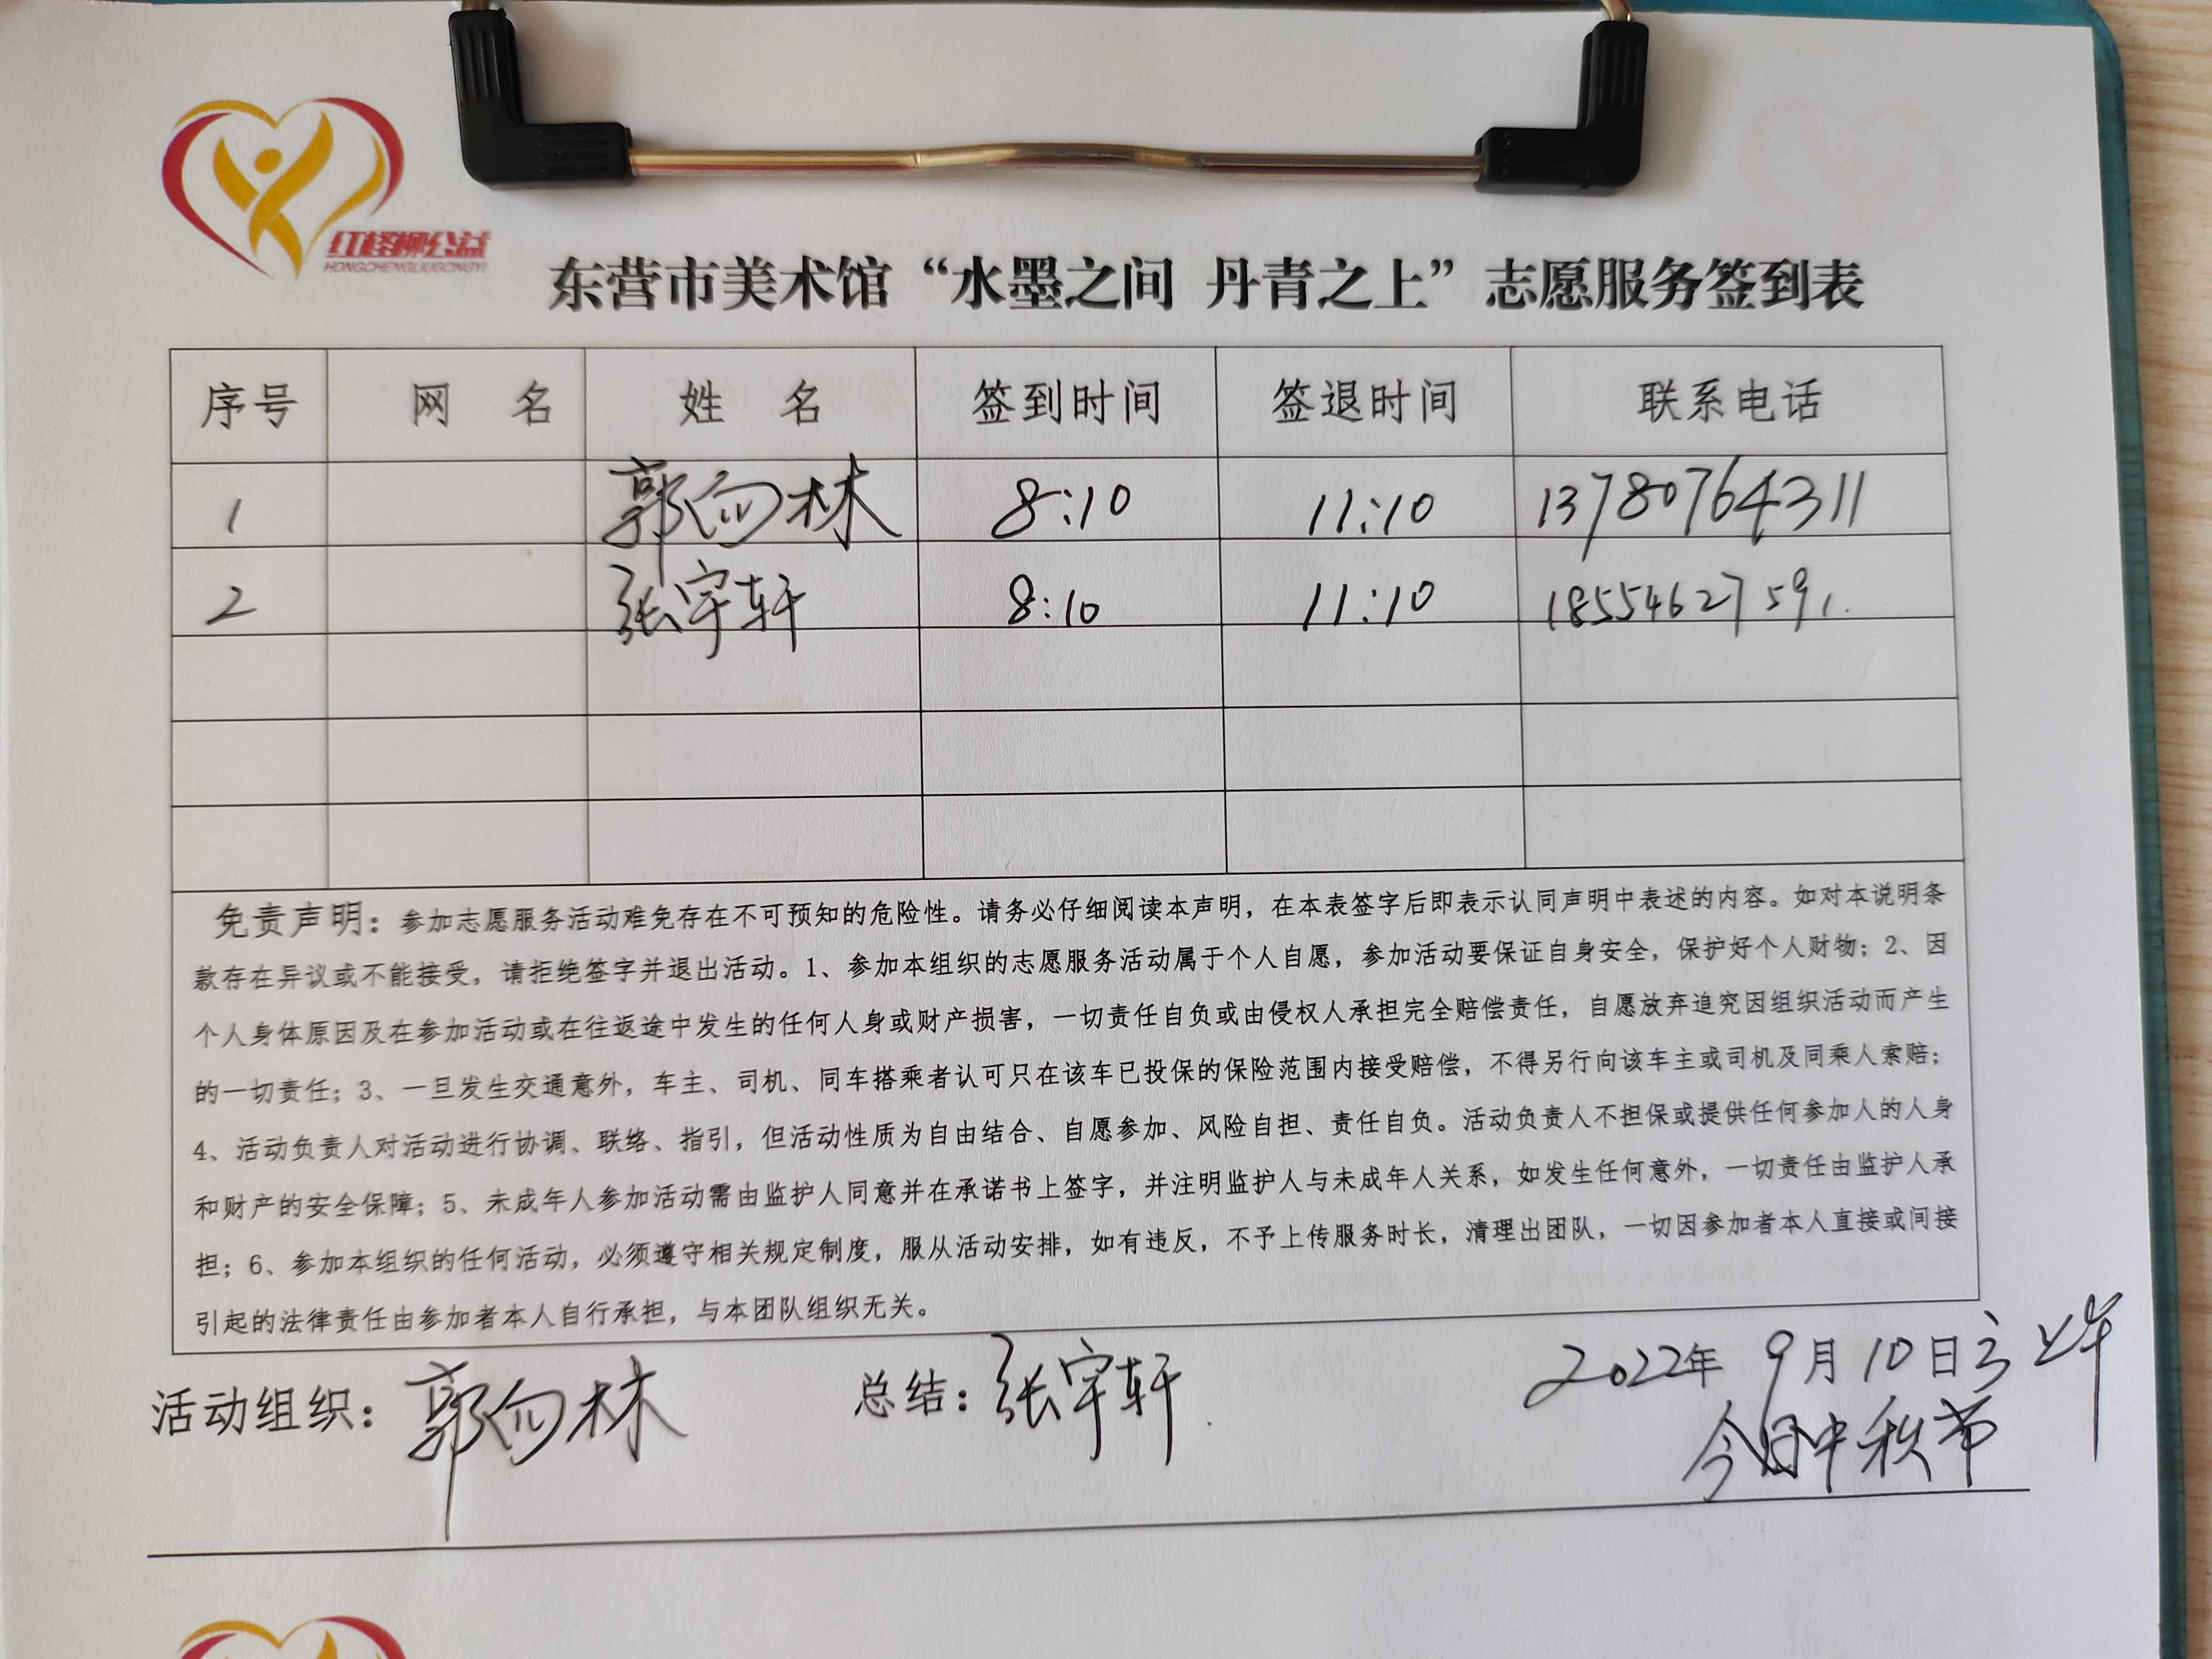 红柽柳公益
HONGCHENGLIUGONGYI
东营市美术馆“水墨之间 丹青之上”志愿服务签到表
序号 网 名 姓 名 签到时间 签退时间 联系电话
1 郭向林 8:10 11:10 13780764311
2 张宇轩 8:10 11:10 18554627591.
免责声明：参加志愿服务活动难免存在不可预知的危险性。请务必仔细阅读本声明，在本表签字后即表示认同声明中表述的内容。如对本说明条
款存在异议或不能接受，请拒绝签字并退出活动。1、参加本组织的志愿服务活动属于个人自愿，参加活动要保证自身安全，保护好个人财物；2、因
个人身体原因及在参加活动或在往返途中发生的任何人身或财产损害，一切责任自负或由侵权人承担完全赔偿责任，自愿放弃追究因组织活动而产生
的一切责任；3、一旦发生交通意外，车主、司机、同车搭乘者认可只在该车已投保的保险范围内接受赔偿，不得另行向该车主或司机及同乘人索赔；
4、活动负责人对活动进行协调、联络、指引，但活动性质为自由结合、自愿参加、风险自担、责任自负。活动负责人不担保或提供任何参加人的人身
和财产的安全保障；5、未成年人参加活动需由监护人同意并在承诺书上签字，并注明监护人与未成年人关系，如发生任何意外，一切责任由监护人承
担；6、参加本组织的任何活动，必须遵守相关规定制度，服从活动安排，如有违反，不予上传服务时长，清理出团队，一切因参加者本人直接或间接
引起的法律责任由参加者本人自行承担，与本团队组织无关。
活动组织：郭向林 总结：张宇轩 2022年 9月10日 上午
今日中秋节